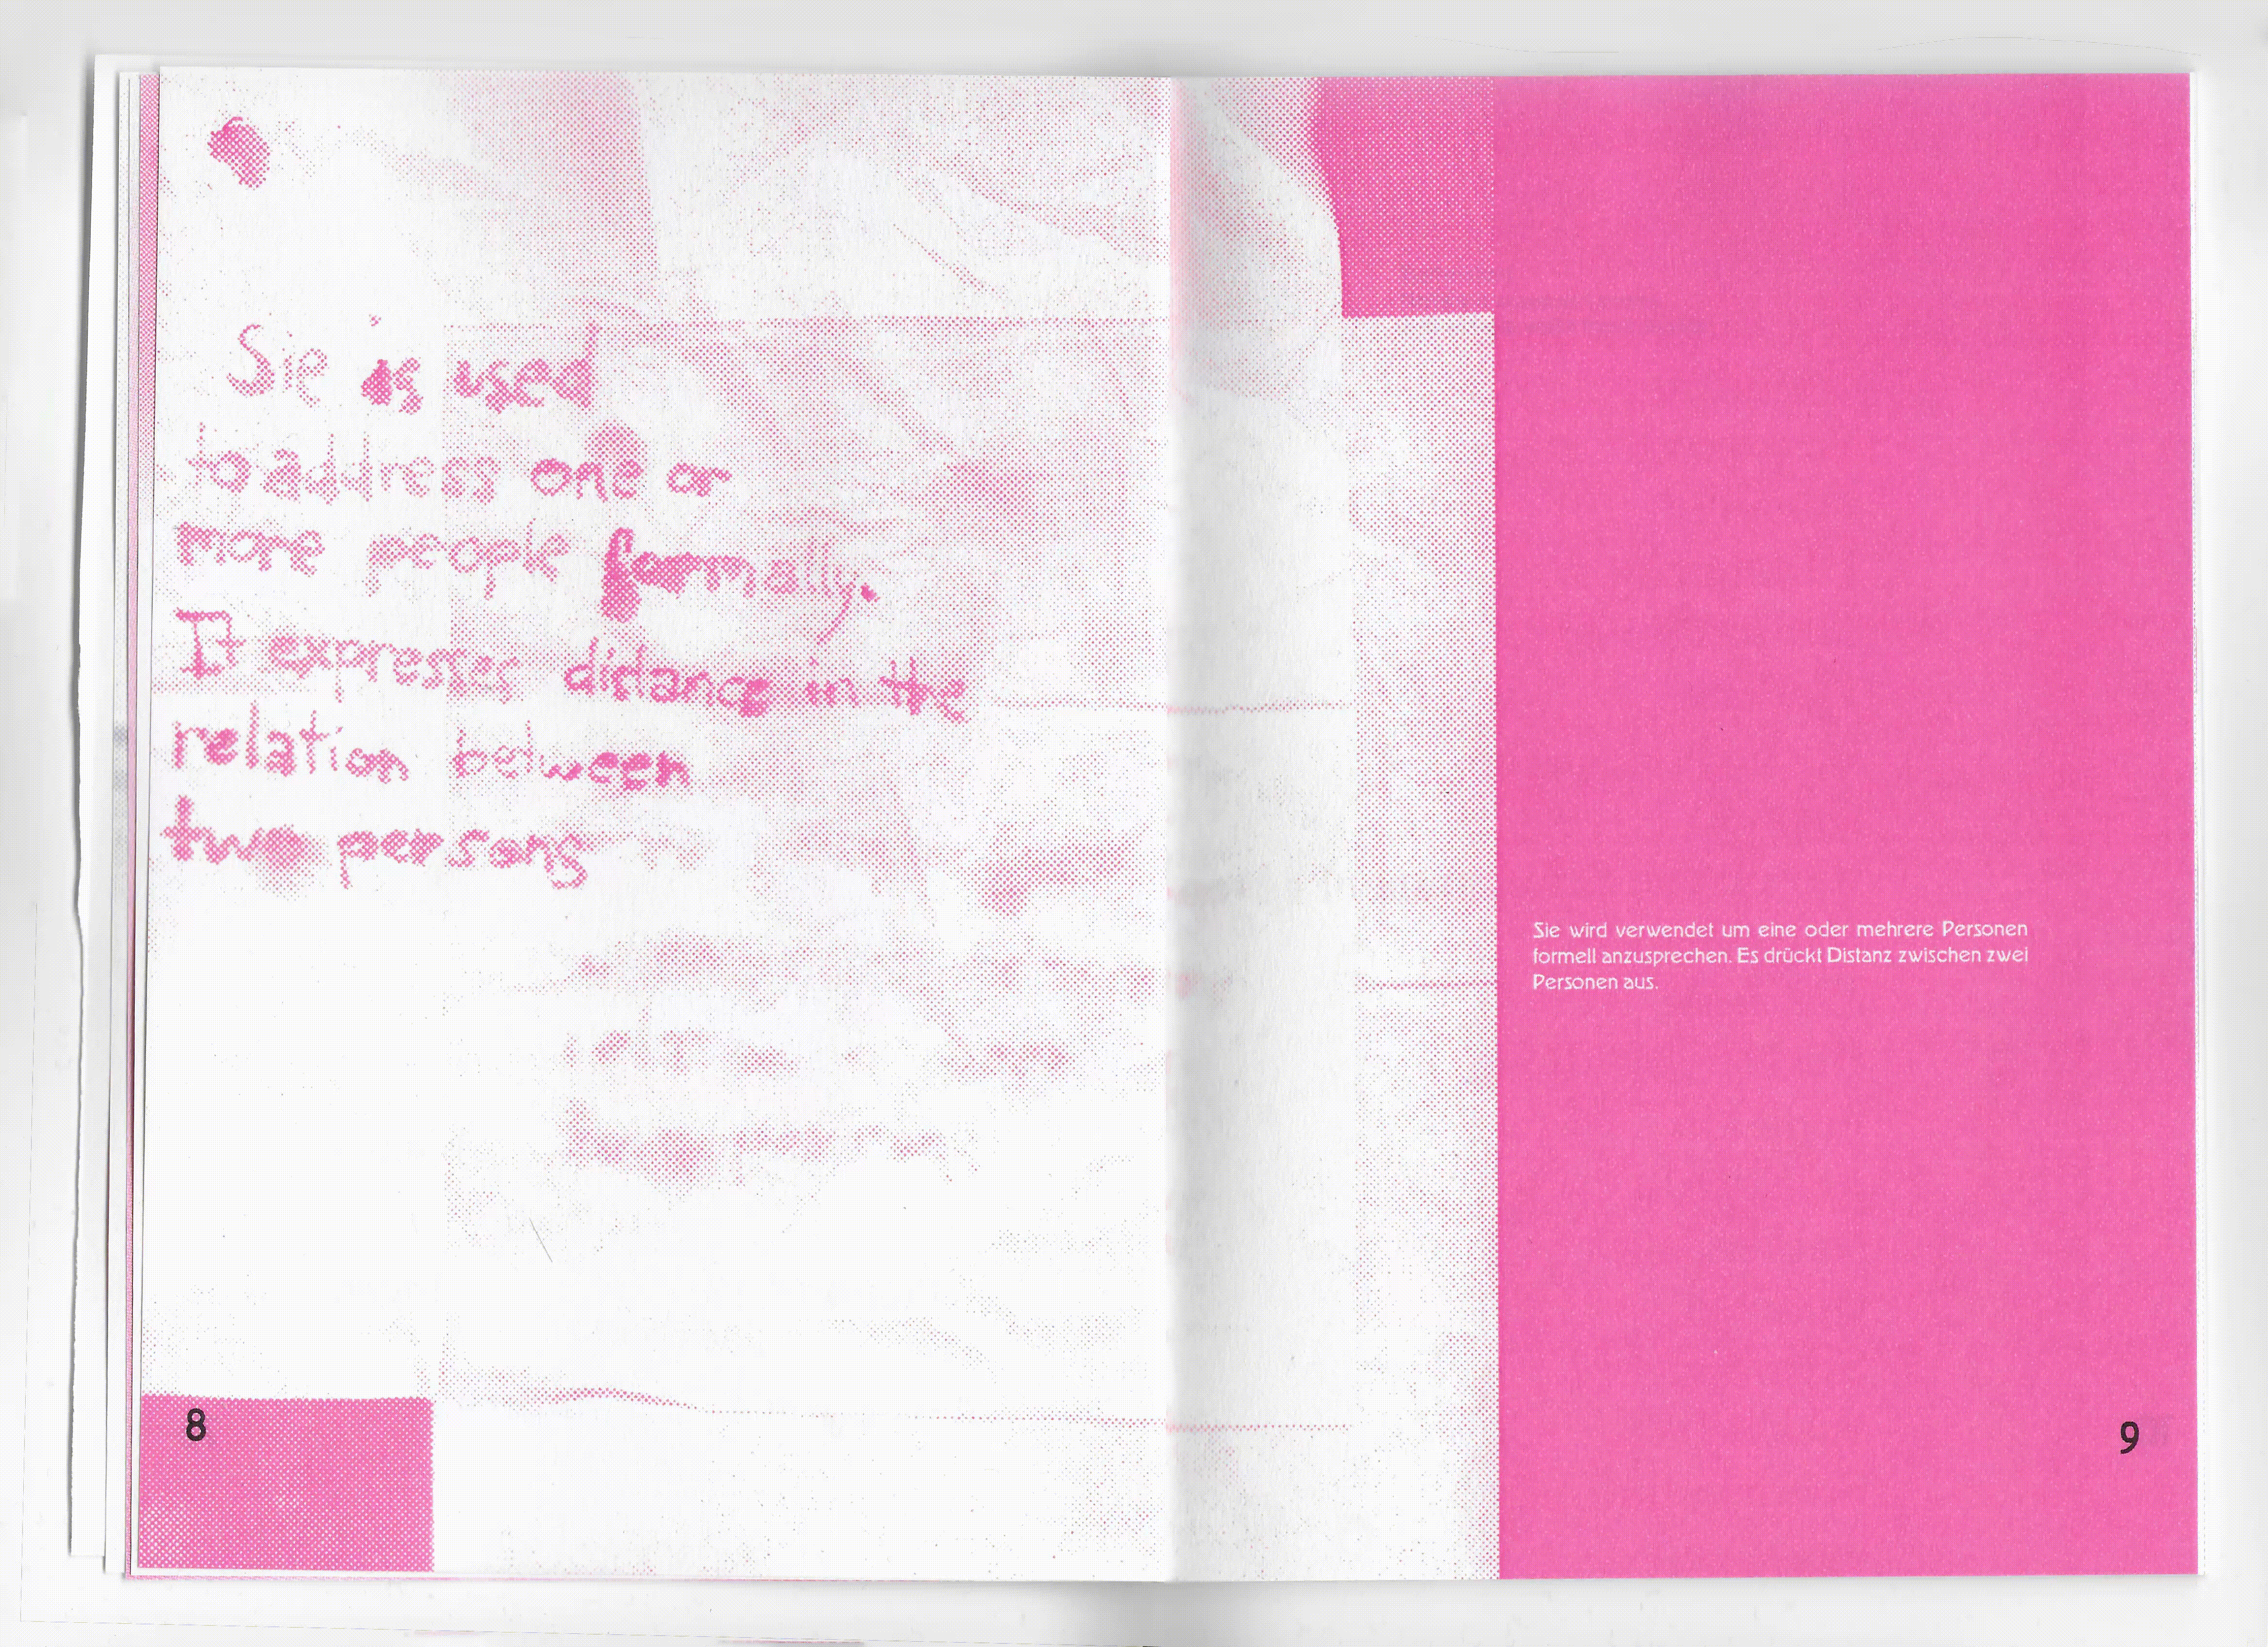 Sie is used
to address one or
more people formally.
It expresses distance in the
relation between
two persons
8
Sie wird verwendet um eine oder mehrere Personen
formell anzusprechen. Es drückt Distanz zwischen zwei
Personen aus.
9